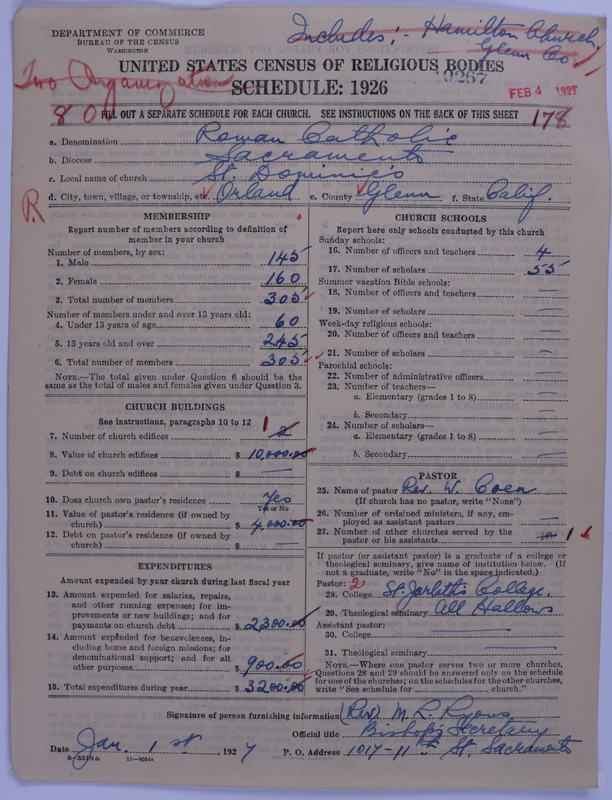 DEPARTMENT OF COMMERCE
BUREAU OF THE CENSUS
WASHINGTON
Includes: Hamilton Church,
Glenn Co.
UNITED STATES CENSUS OF RELIGIOUS BODIES
Two Organization
SCHEDULE: 1926
10267
FEB 4 1927
80
178
FILL OUT A SEPARATE SCHEDULE FOR EACH CHURCH. SEE INSTRUCTIONS ON THE BACK OF THIS SHEET
a. Denomination Roman Catholic
b. Diocese Sacramento
c. Local name of church St. Dominic's
d. City, town, village, or township, etc. Orland e. County Glenn f. State Calif.
R
MEMBERSHIP
Report number of members according to definition of
member in your church
Number of members, by sex:
1. Male 145
2. Female 160
3. Total number of members 305
Number of members under and over 13 years old:
4. Under 13 years of age 60
5. 13 years old and over 245
6. Total number of members 305
NOTE.—The total given under Question 6 should be the
same as the total of males and females given under Question 3.
CHURCH BUILDINGS
See instructions, paragraphs 10 to 12
7. Number of church edifices 2 1
8. Value of church edifices $ 10,000.00
9. Debt on church edifices $ —
10. Does church own pastor's residence Yes
Yes or No
11. Value of pastor's residence (if owned by
church) $ 4,000.00
12. Debt on pastor's residence (if owned by
church) $
EXPENDITURES
Amount expended by your church during last fiscal year
13. Amount expended for salaries, repairs,
and other running expenses; for im-
provements or new buildings; and for
payments on church debt $ 2,300.00
14. Amount expended for benevolences, in-
cluding home and foreign missions; for
denominational support; and for all
other purposes $ 900.00
15. Total expenditures during year $ 3200.00
CHURCH SCHOOLS
Report here only schools conducted by this church
Sunday schools:
16. Number of officers and teachers 4
17. Number of scholars 55
Summer vacation Bible schools:
18. Number of officers and teachers —
19. Number of scholars —
Week-day religious schools:
20. Number of officers and teachers —
21. Number of scholars —
Parochial schools:
22. Number of administrative officers —
23. Number of teachers—
a. Elementary (grades 1 to 8) —
b. Secondary —
24. Number of scholars—
a. Elementary (grades 1 to 8) —
b. Secondary —
PASTOR
25. Name of pastor Rev. W. Coen
(If church has no pastor, write "None")
26. Number of ordained ministers, if any, em-
ployed as assistant pastors —
27. Number of other churches served by the
pastor or his assistants 1
If pastor (or assistant pastor) is a graduate of a college or
theological seminary, give name of institution below. (If
not a graduate, write "No" in the space indicated.)
Pastor: 2
28. College St. Jarlath's College.
29. Theological seminary All Hallows
Assistant pastor:
30. College —
31. Theological seminary —
NOTE.—Where one pastor serves two or more churches,
Questions 28 and 29 should be answered only on the schedule
for one of the churches; on the schedules for the other churches,
write "See schedule for church."
Signature of person furnishing information (Rev) M. L. Lyons
Official title Bishop's Secretary
Date Jan. 1st, 1927 P. O. Address 1017-11th St. Sacramento
8—5519a 11—9054